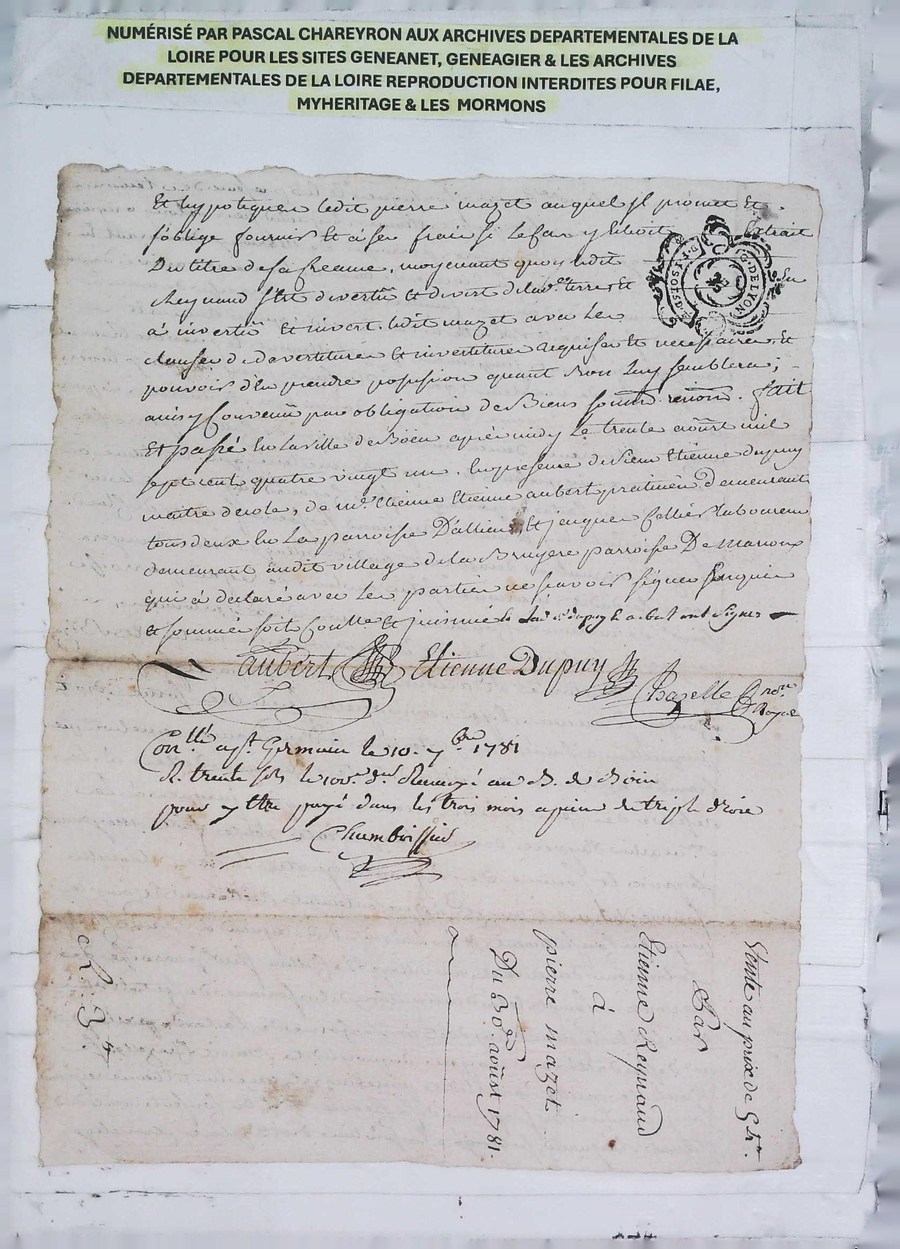 NUMÉRISÉ PAR PASCAL CHAREYRON AUX ARCHIVES DEPARTEMENTALES DE LA
LOIRE POUR LES SITES GENEANET, GENEAGIER & LES ARCHIVES
DEPARTEMENTALES DE LA LOIRE REPRODUCTION INTERDITES POUR FILAE,
MYHERITAGE & LES MORMONS
Et hypotiquer ledit pierre mazet auquel jl promet Et
s'oblige fournir Et à ses frais si le cas y Echoit Extrait
Du titre de sa Creance, moyenant quoy ledit
Reynaud s'Est divertu et divert de lad. terre Et En
à invertu Et invert ledit mazet avec les
clauses de devertiture Et invertiture requises Et necessaires, Et
pouvoir d'En prendre possession quant bon Luy semblera;
ainsy Convenu par obligation de Biens renon. fait
Et passé En La ville de Boën après midy Le trente aoust mil
sept cent quatre vingt un. En presence de sieur Etienne Dupuy
maitre decole, de me. Etienne Etienne aubert praticien Demeurant
tous deux En La parroisse D'allieu, Et jacques Cellier Laboureur
demeurant audit village de la Bruyere parroisse De Marcoux
qui à declaré avec Les parties ne sçavoir signer Enquis
Et sommé soit Controllé Et jnsinué Dupuy & aubert ont signés
aubert Etienne Dupuy
Chazelle nore
Royal
Conlle a st. Germain le 10. 7bre 1781
R. trente sols le Renvoyé au B. de Boën
pour y etre payé dans les trois mois a peine de triple droit
Vente au prix de
Par
Etienne Reynaud
à
pierre mazet
Du 30e. aoust 1781.